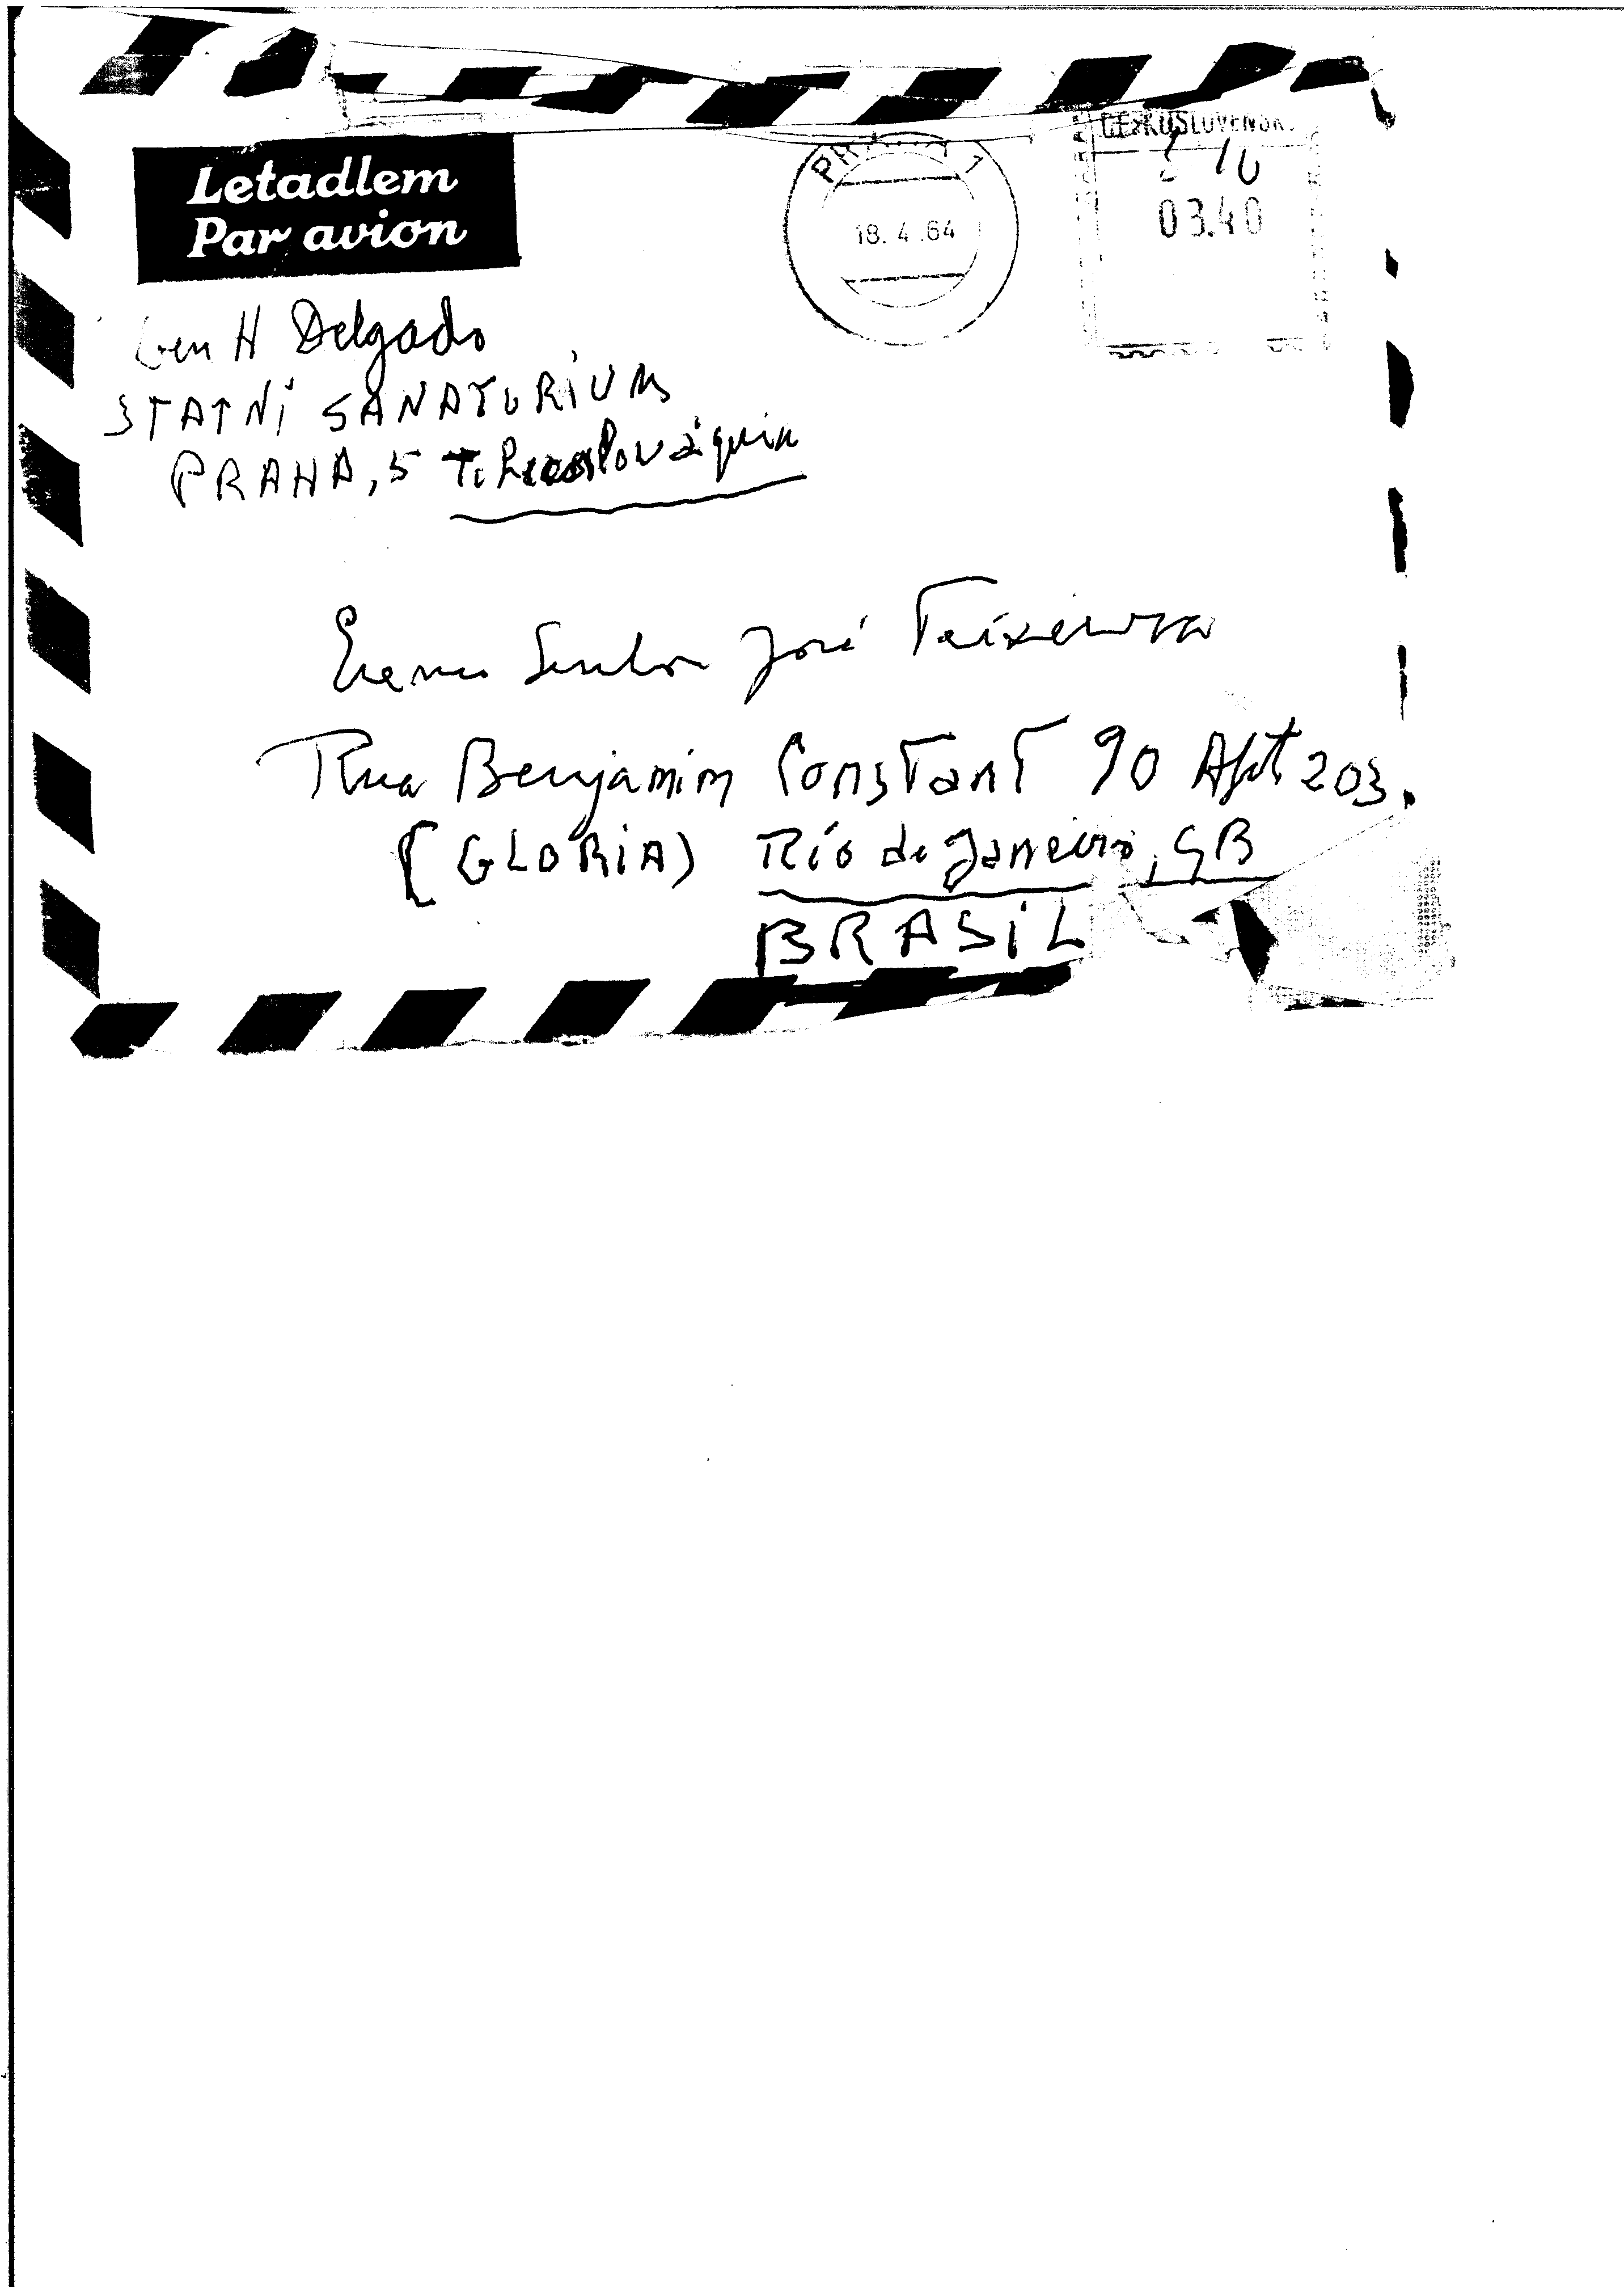 Letadlem
Par avion
PRAHA 1
18. 4. 64
ČESKOSLOVENSK
03.40
Gen H Delgado
STATNÍ SANATORIUM
PRAHA, 5 Tchecoslováquia
Exmo Senhor José Teixeira
Rua Benjamim Constant 90 Apt 203.
(GLORIA) Río de Janeiro, GB
BRASIL